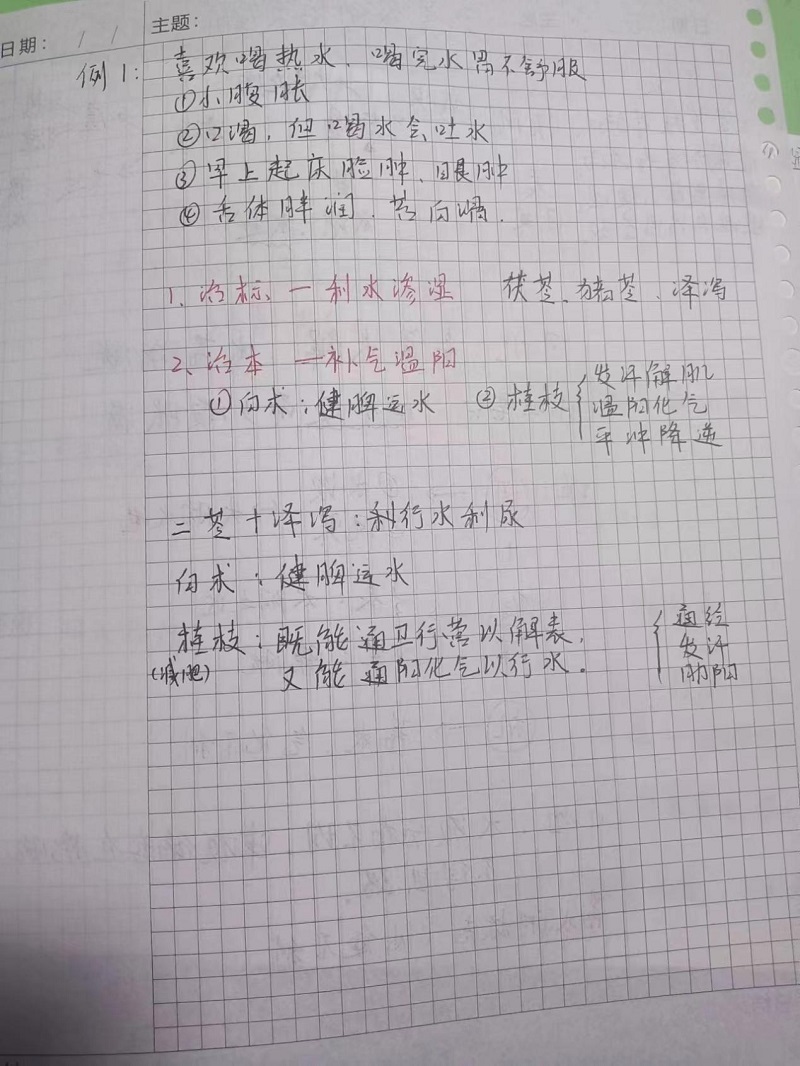 主题:
日期: / /
例1: 喜欢喝热水、喝完水胃不舒服
①小腹胀
②口渴,但喝水会吐水
③早上起床脸肿、眼肿
④舌体胖润、苔白滑.
1、治标 — 利水渗湿 茯苓、猪苓、泽泻
2、治本 — 补气温阳
①白术:健脾运水 ②桂枝 { 发汗解肌
温阳化气
平冲降逆
二苓+泽泻:利行水利尿
白术:健脾运水
桂枝:既能通卫行营以解表, { 通经
(减肥) 又能通阳化气以行水. 发汗
助阳